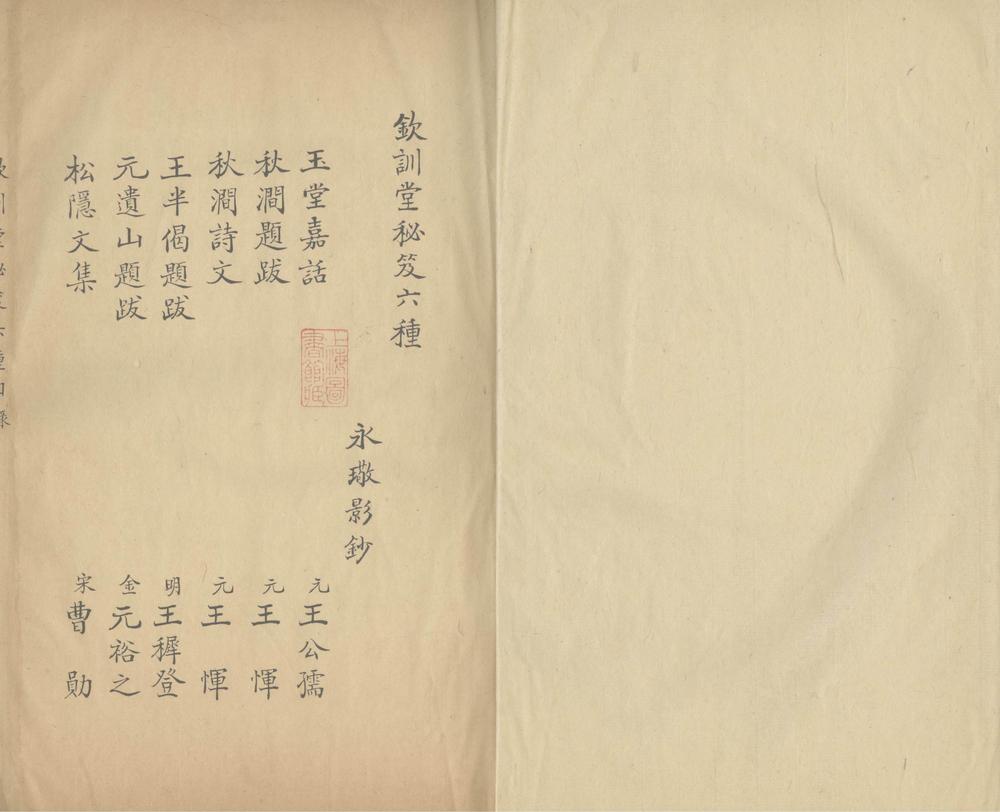 欽訓堂秘笈六種
永璥影鈔
玉堂嘉話 元 王公孺
秋澗題跋 元 王惲
秋澗詩文 元 王惲
王半偈題跋 明 王穉登
元遺山題跋 金 元裕之
松隱文集 宋 曹勛
上海圖書館藏